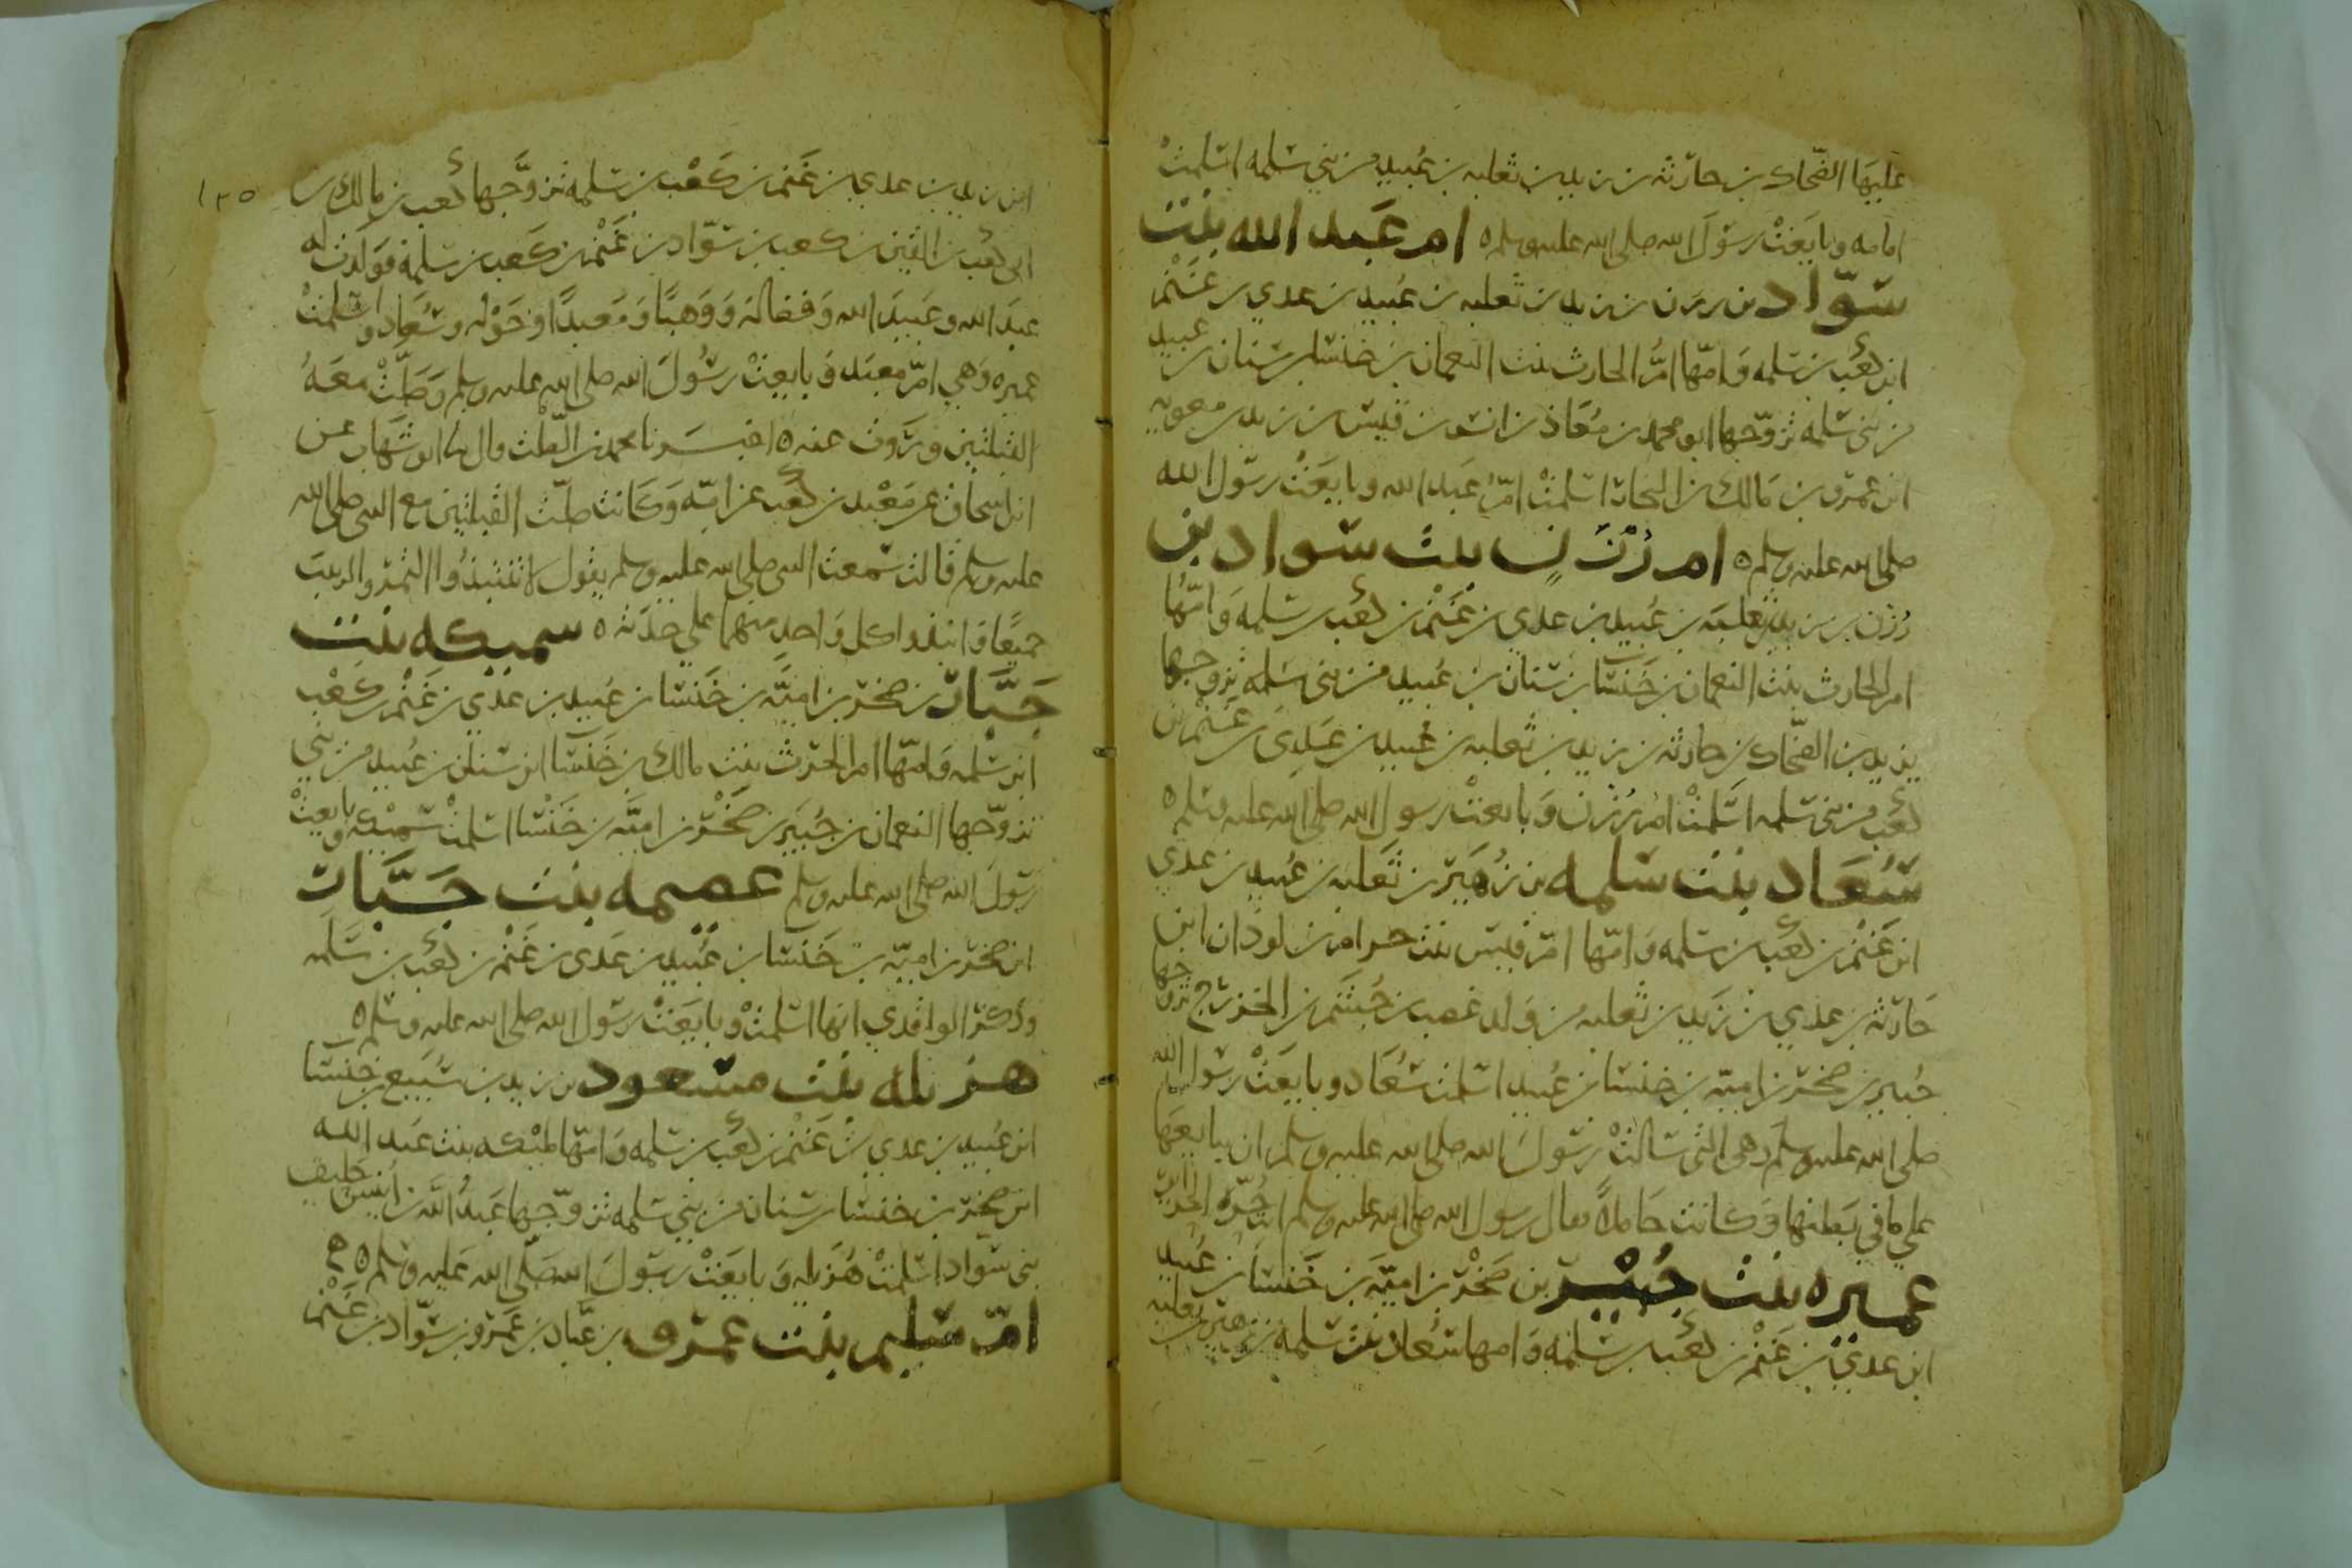 عليها الضحاك بن حارثه بن زيد بن ثعلبه بن عبيد من بني سلمه اسلمت
امامه وبايعت رسول الله صلى الله عليه وسلم ه ام عبد الله بنت
سواد بن رزن بن زيد بن ثعلبه بن عبيد بن عدي بن غنم
ابن كعب بن سلمه وامها ام الحارث بنت النعمان بن خنسا بن سنان بن عبيد
من بني سلمه تزوجها ابو محمد بن معاذ بن انس بن قيس بن زيد بن معويه
ابن عمرو بن مالك بن النجار اسلمت ام عبد الله وبايعت رسول الله
صلى الله عليه وسلم ه ام رزن بنت سواد بن
رزن بن زيد بن ثعلبه بن عبيد بن عدي بن غنم بن كعب بن سلمه وامها
ام الحارث بنت النعمان بن خنسا بن سنان بن عبيد من بني سلمه تزوجها
يزيد بن الضحاك بن حارثه بن زيد بن ثعلبه بن عبيد بن عدي بن غنم بن
كعب من بني سلمه اسلمت ام رزن وبايعت رسول الله صلى الله عليه وسلم ه
سعاد بنت سلمه بن زهير بن ثعلبه بن عبيد بن عدي
ابن غنم بن كعب بن سلمه وامها ام قيس بنت حرام بن لوذان ابن
حارثه بن عدي بن زيد بن ثعلبه من ولد غصب بن جشم بن الخزرج تزوجها
جبير بن صخر بن اميه بن خنسا بن عبيد اسلمت سعاد وبايعت رسول الله
صلى الله عليه وسلم وهي التي سالت رسول الله صلى الله عليه وسلم ان يبايعها
على ما في بطنها وكانت حاملا فقال رسول الله صلى الله عليه وسلم انت حره الحراير
عميره بنت جبير بن صخر بن اميه بن خنسا بن عبيد
ابن عدي بن غنم بن كعب بن سلمه وامها سعاد بنت سلمه بن زهير بن ثعلبه
١٢٥
ابن زيد بن عدي بن غنم بن كعب بن سلمه تزوجها كعب بن مالك بن
ابي كعب بن القين بن كعب بن سواد بن غنم بن كعب بن سلمه فولدت له
عبد الله وعبيد الله وفضاله ووهبا ومعبدا وخوله وسعاد واسلمت
عميره وهي ام معبد وبايعت رسول الله صلى الله عليه وسلم وصلت معه
القبلتين وروت عنه ه اخبرنا محمد بن الصلت قال ابو شهاب عن
ابن اسحاق عن معبد بن كعب عن امه وكانت صلت القبلتين مع النبي صلى الله
عليه وسلم قالت سمعت النبي صلى الله عليه وسلم يقول لا تنتبذوا التمر والزبيب
جميعا وانبذوا كل واحد منهما على حدته ه سميكه بنت
جبار بن صخر بن اميه بن خنسا بن عبيد بن عدي بن غنم بن كعب
ابن سلمه وامها ام الحرث بنت مالك بن خنسا ابن سنان بن عبيد من بني
تزوجها النعمان بن جبير بن صخر بن اميه بن خنسا اسلمت سميكه وبايعت
رسول الله صلى الله عليه وسلم عصيمه بنت جبار
ابن صخر بن اميه بن خنسا بن عبيد بن عدي بن غنم بن كعب بن سلمه
وذكر الواقدي انها اسلمت وبايعت رسول الله صلى الله عليه وسلم ه
هزيله بنت مسعود بن زيد بن سبيع بن خنسا
ابن عبيد بن عدي بن غنم بن كعب بن سلمه وامها مليكه بنت عبد الله
ابن صخر بن خنسا بن سنان من بني سلمه تزوجها عبد الله بن انيس حليف
بني سواد اسلمت هزيله وبايعت رسول الله صلى الله عليه وسلم ه
ام سليم بنت عمرو بن عباد بن عمرو بن سواد بن غنم